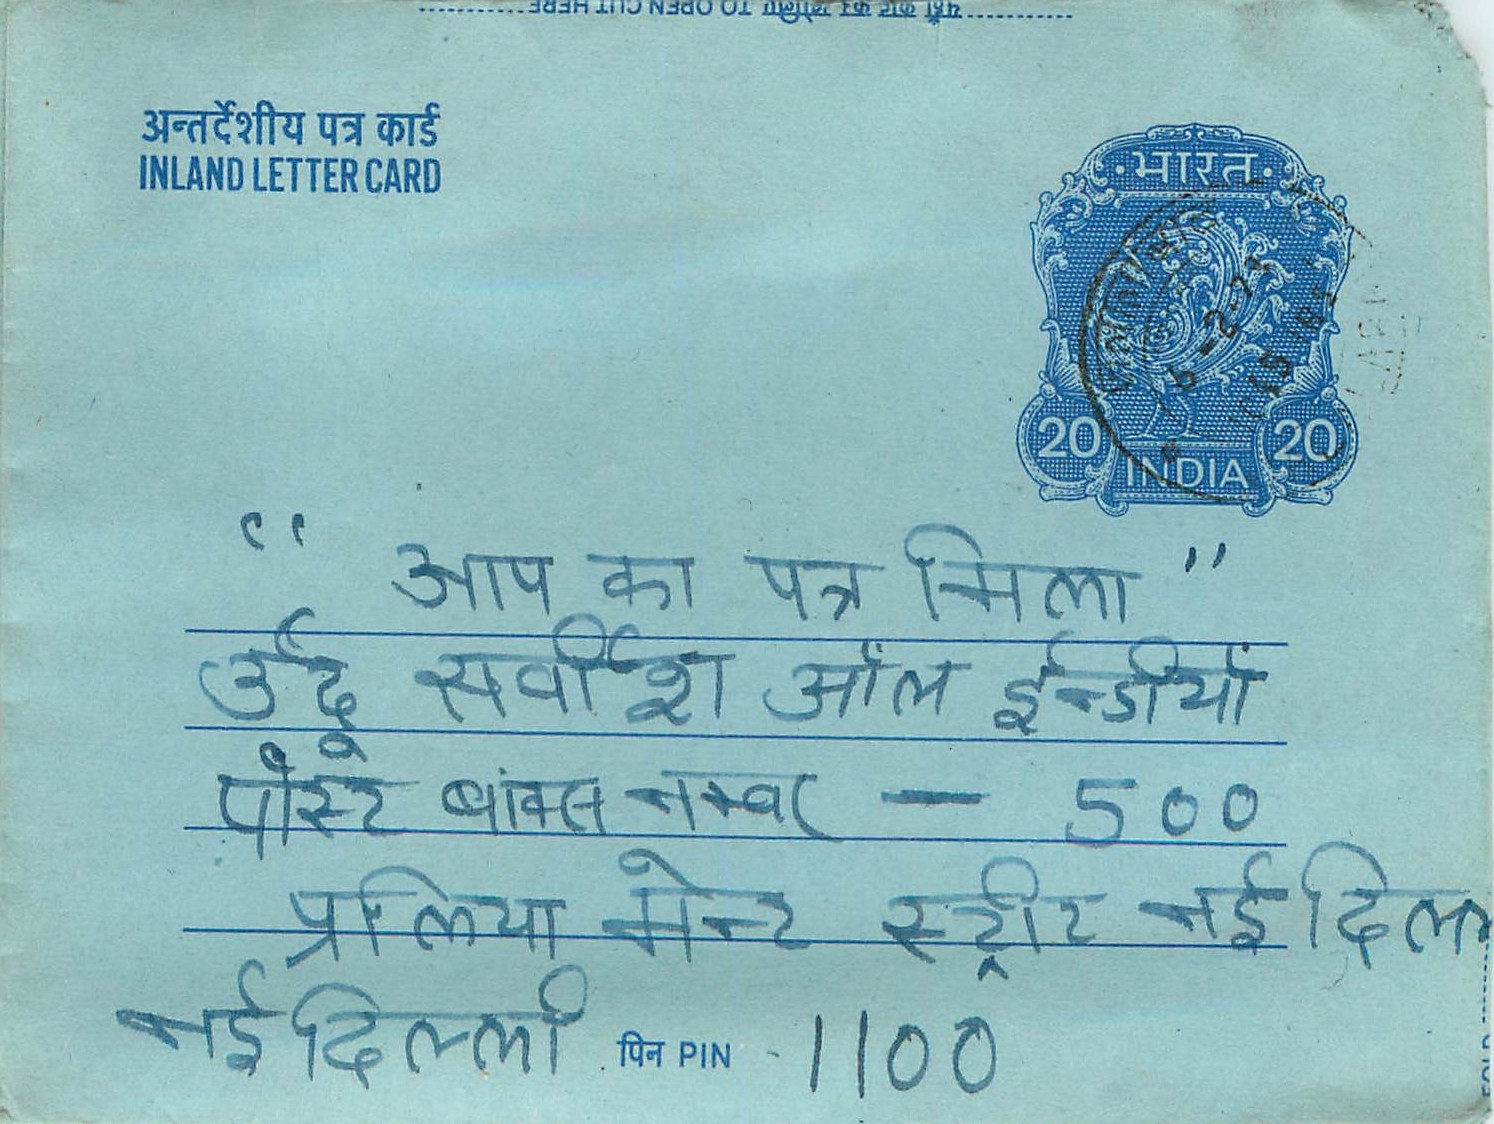 यहाँ काट कर खोलिए TO OPEN CUT HERE
अन्तर्देशीय पत्र कार्ड
INLAND LETTER CARD
भारत
20 20
INDIA
"आप का पत्र मिला"
उर्दू सर्वीश ऑल ईन्डीयाँ
पोस्ट बांक्स नम्बर — 500
प्रलिया मेन्ट स्ट्रीट नई दिल्ल
नई दिल्ली पिन PIN - 1100
FOLD